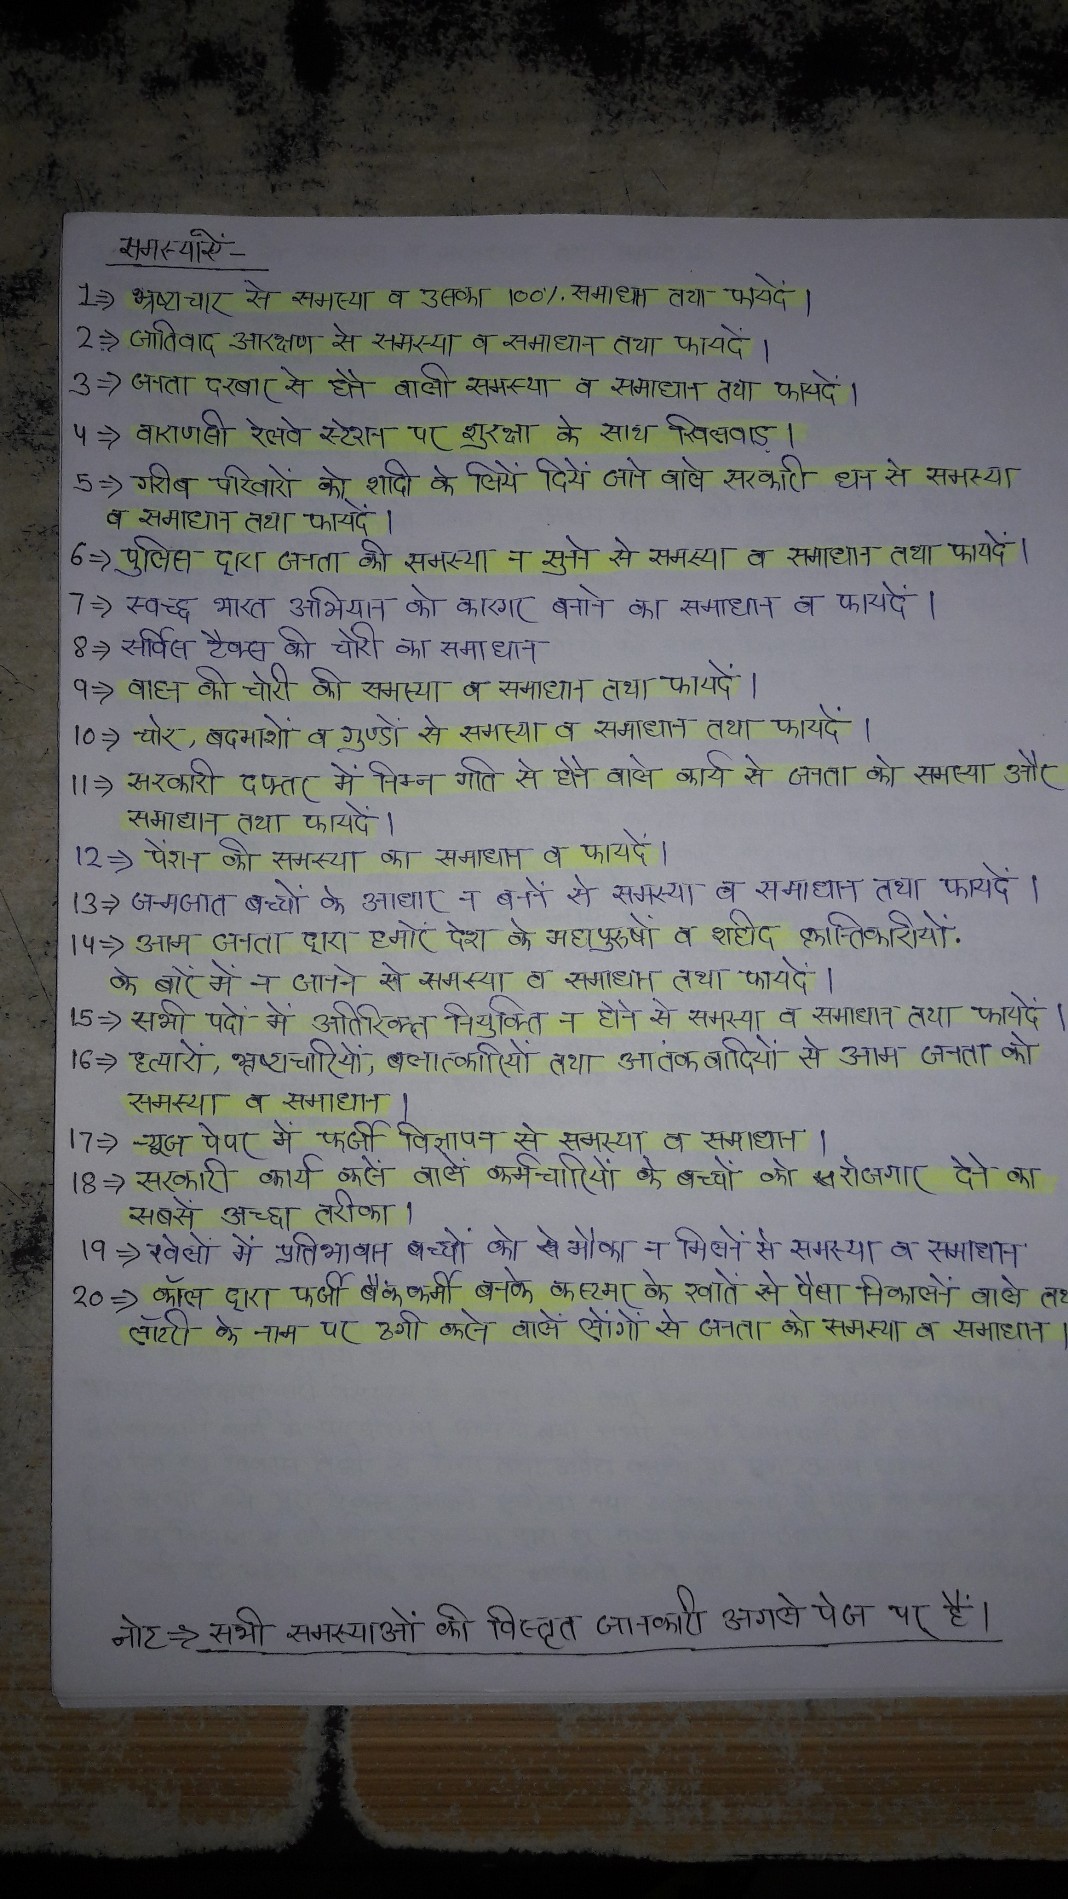 समस्याऐं -
1⇒ भ्रष्टाचार से समस्या व उसका 100%. समाधान तथा फायदें।
2⇒ जातिवाद आरक्षण से समस्या व समाधान तथा फायदें।
3⇒ जनता दरबार से होने वाली समस्या व समाधान तथा फायदें।
4⇒ वाराणसी रेलवे स्टेशन पर शुरक्षा के साथ खिलवाड़।
5⇒ गरीब परिवारों को शादी के लियें दियें जाने वाले सरकारी धन से समस्या
व समाधान तथा फायदें।
6⇒ पुलिस द्वारा जनता की समस्या न सुनने से समस्या व समाधान तथा फायदें।
7⇒ स्वच्छ भारत अभियान को कारगर बनाने का समाधान व फायदें।
8⇒ सर्विस टैक्स की चोरी का समाधान
9⇒ वाहन की चोरी की समस्या व समाधान तथा फायदें।
10⇒ चोर, बदमाशों व गुण्डों से समस्या व समाधान तथा फायदें।
11⇒ सरकारी दफ्तर में निम्न गति से होने वाले कार्य से जनता को समस्या और
समाधान तथा फायदें।
12⇒ पेंशन की समस्या का समाधान व फायदें।
13⇒ जन्मजात बच्चों के आधार न बननें से समस्या व समाधान तथा फायदें।
14⇒ आम जनता द्वारा हमारे देश के महापुरुषों व शहीद क्रान्तिकारियों.
के बारें में न जानने से समस्या व समाधान तथा फायदें।
15⇒ सभी पदों में अतिरिक्त नियुक्ति न होने से समस्या व समाधान तथा फायदें।
16⇒ हत्यारों, भ्रष्टाचारियों, बलात्कारियों तथा आतंकवादियों से आम जनता को
समस्या व समाधान।
17⇒ न्यूज पेपर में फर्जी विज्ञापन से समस्या व समाधान।
18⇒ सरकारी कार्य करनें वालें कर्मचारियों के बच्चों को रोजगार देने का
सबसें अच्छा तरीका।
19⇒ खेलों में प्रतिभावान बच्चों को मौका न मिलनें से समस्या व समाधान
20⇒ कॉल द्वारा फर्जी बैंककर्मी बनके कस्टमर के खातें से पैसा निकालनें वाले
लॉटरी के नाम पर ठगी करने वालें लोंगों से जनता को समस्या व समाधान।
नोट⇒ सभी समस्याओं की विस्तृत जानकारी अगले पेज पर हैं।